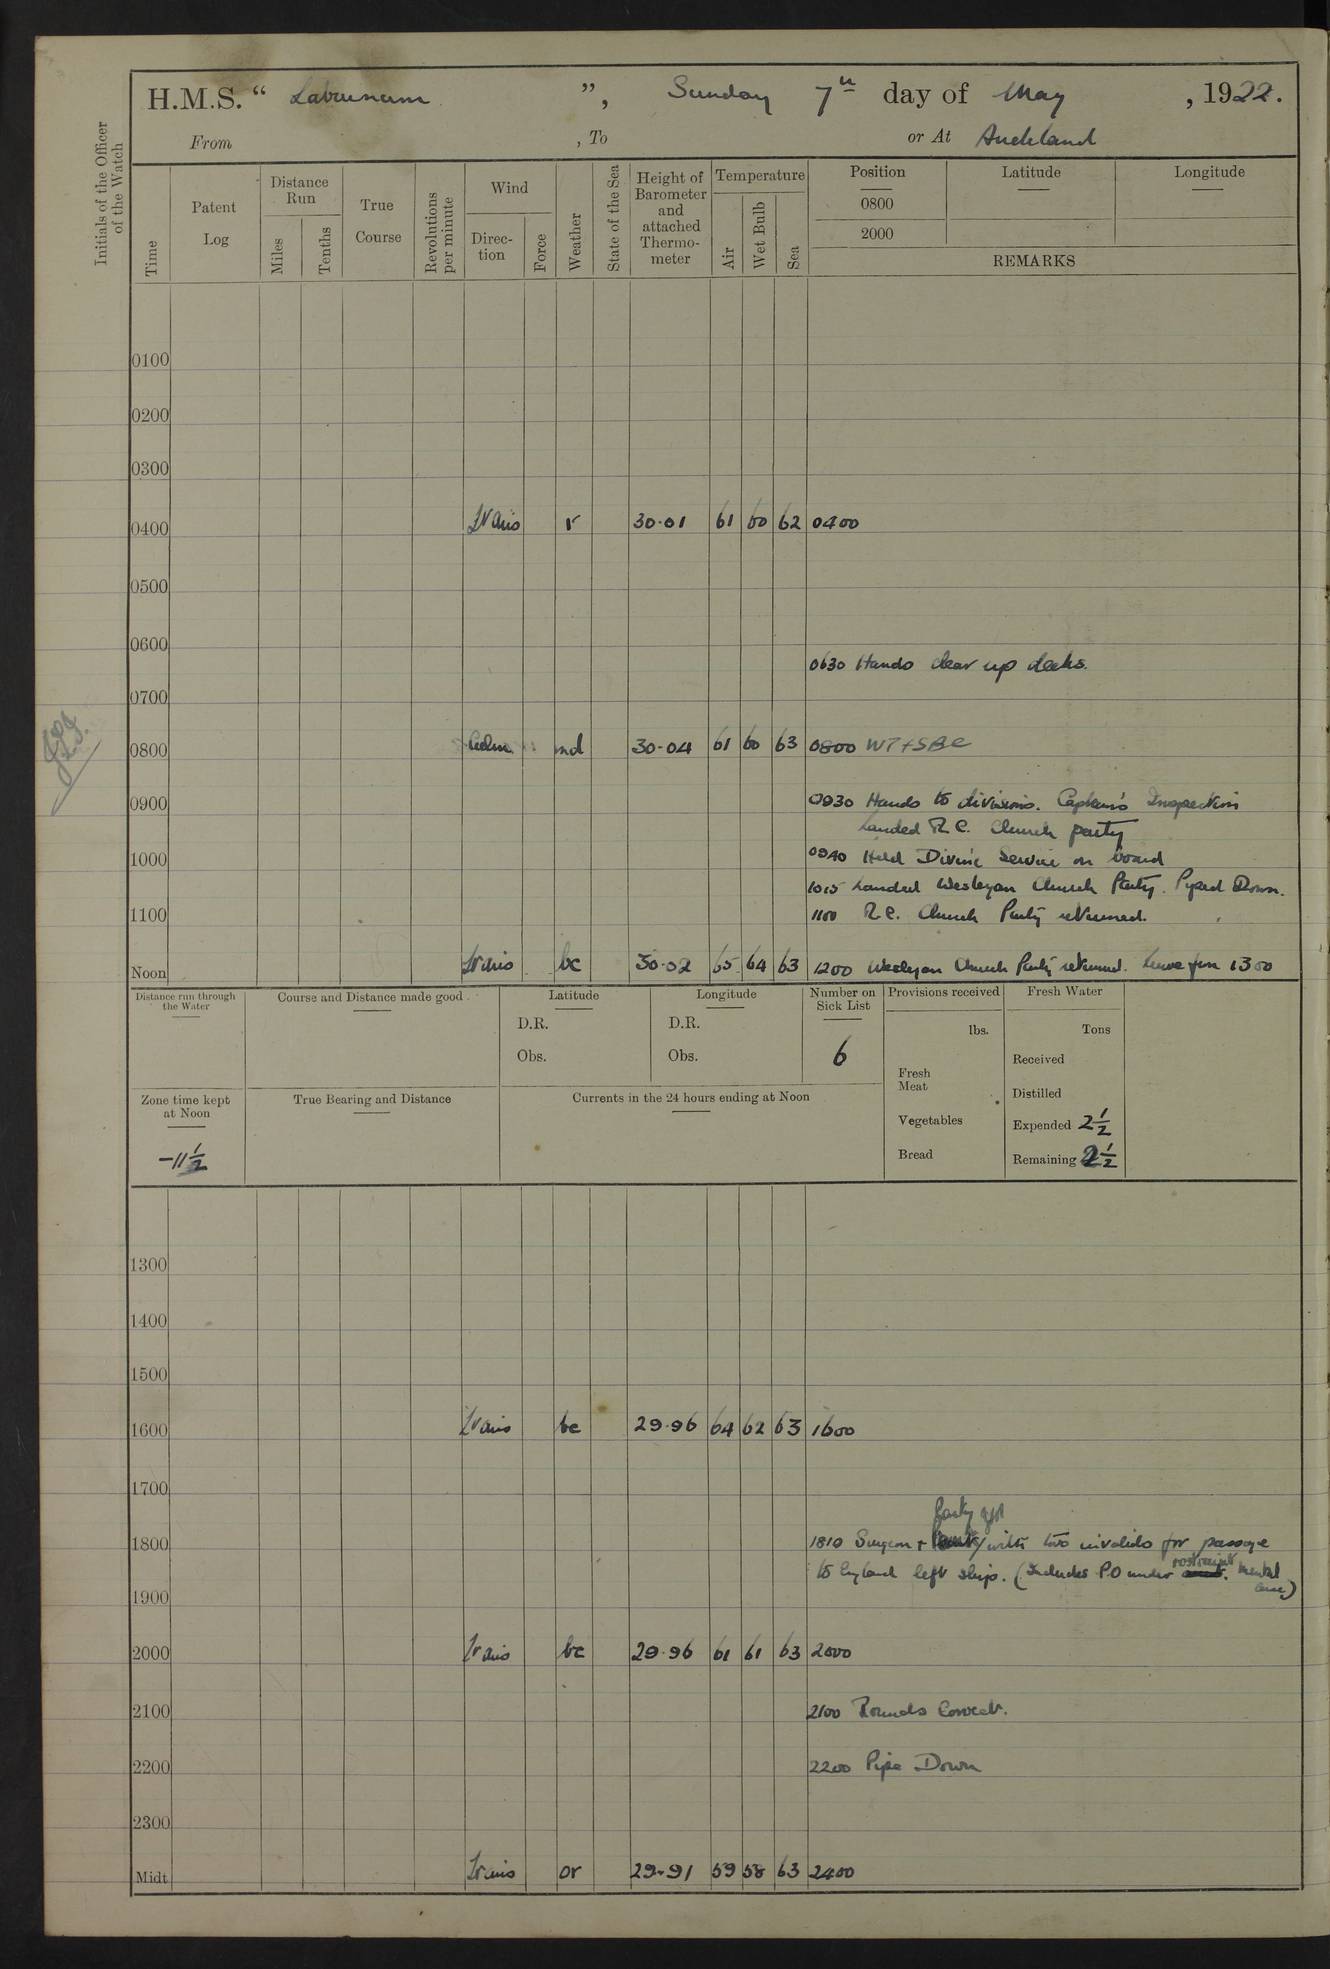 H.M.S. “ Laburnum ”, Sunday 7th day of May , 1922.
From , To or At Auckland
Initials of the Officer of the Watch
Time
Patent Log
Distance Run
Miles
Tenths
True Course
Revolutions per minute
Wind
Direc-tion
Force
Weather
State of the Sea
Height of Barometer and attached Thermo-meter
Temperature
Air
Wet Bulb
Sea
Position
0800
2000
Latitude
Longitude
REMARKS
0100
0200
0300
0400 Lt airs r 30.01 61 60 62 0400
0500
0600
0630 Hands clear up decks.
0700
0800 Calm md 30.04 61 60 63 0800 WT+SBC
0900
0930 Hands to divisions. Captain's Inspection
Landed R.C. Church party
0940 Held Divine Service on board
1000
1015 Landed Wesleyan Church Party. Piped Down.
1100 1100 R.C. Church Party returned.
Noon Lt airs bc 30.02 65 64 63 1200 Wesleyan Church Party returned. Leave from 1300
Distance run through the Water
Course and Distance made good
Latitude
D.R.
Obs.
Longitude
D.R.
Obs.
Number on Sick List
6
Provisions received
lbs.
Fresh Meat
Vegetables
Bread
Fresh Water
Tons
Received
Distilled
Expended 2½
Remaining 2½
Zone time kept at Noon
-11½
True Bearing and Distance
Currents in the 24 hours ending at Noon
1300
1400
1500
1600 Lt airs bc 29.96 64 62 63 1600
1700
1800
1810 Surgeon + Party with two invalids for passage
to England left ship. (Includes P.O under restraint. Mental case)
1900
2000 Lt airs bc 29.96 61 61 63 2000
2100 2100 Rounds Correct.
2200 2200 Pipe Down
2300
Midt Lt airs or 29.91 59 58 63 2400